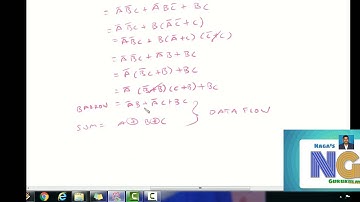 = A̅B̅C + A̅BC̅ + BC
= A̅B̅C + B(A̅C̅+C)
= A̅B̅C + B(A̅+C)(C̅+C)
= A̅B̅C + A̅B + BC
= A̅(B̅C+B) + BC
= A̅(B̅+B)(C+B) + BC
BARROW = A̅B + A̅C + BC
SUM = A⊕B⊕C } DATA FLOW
NAGA'S
NG